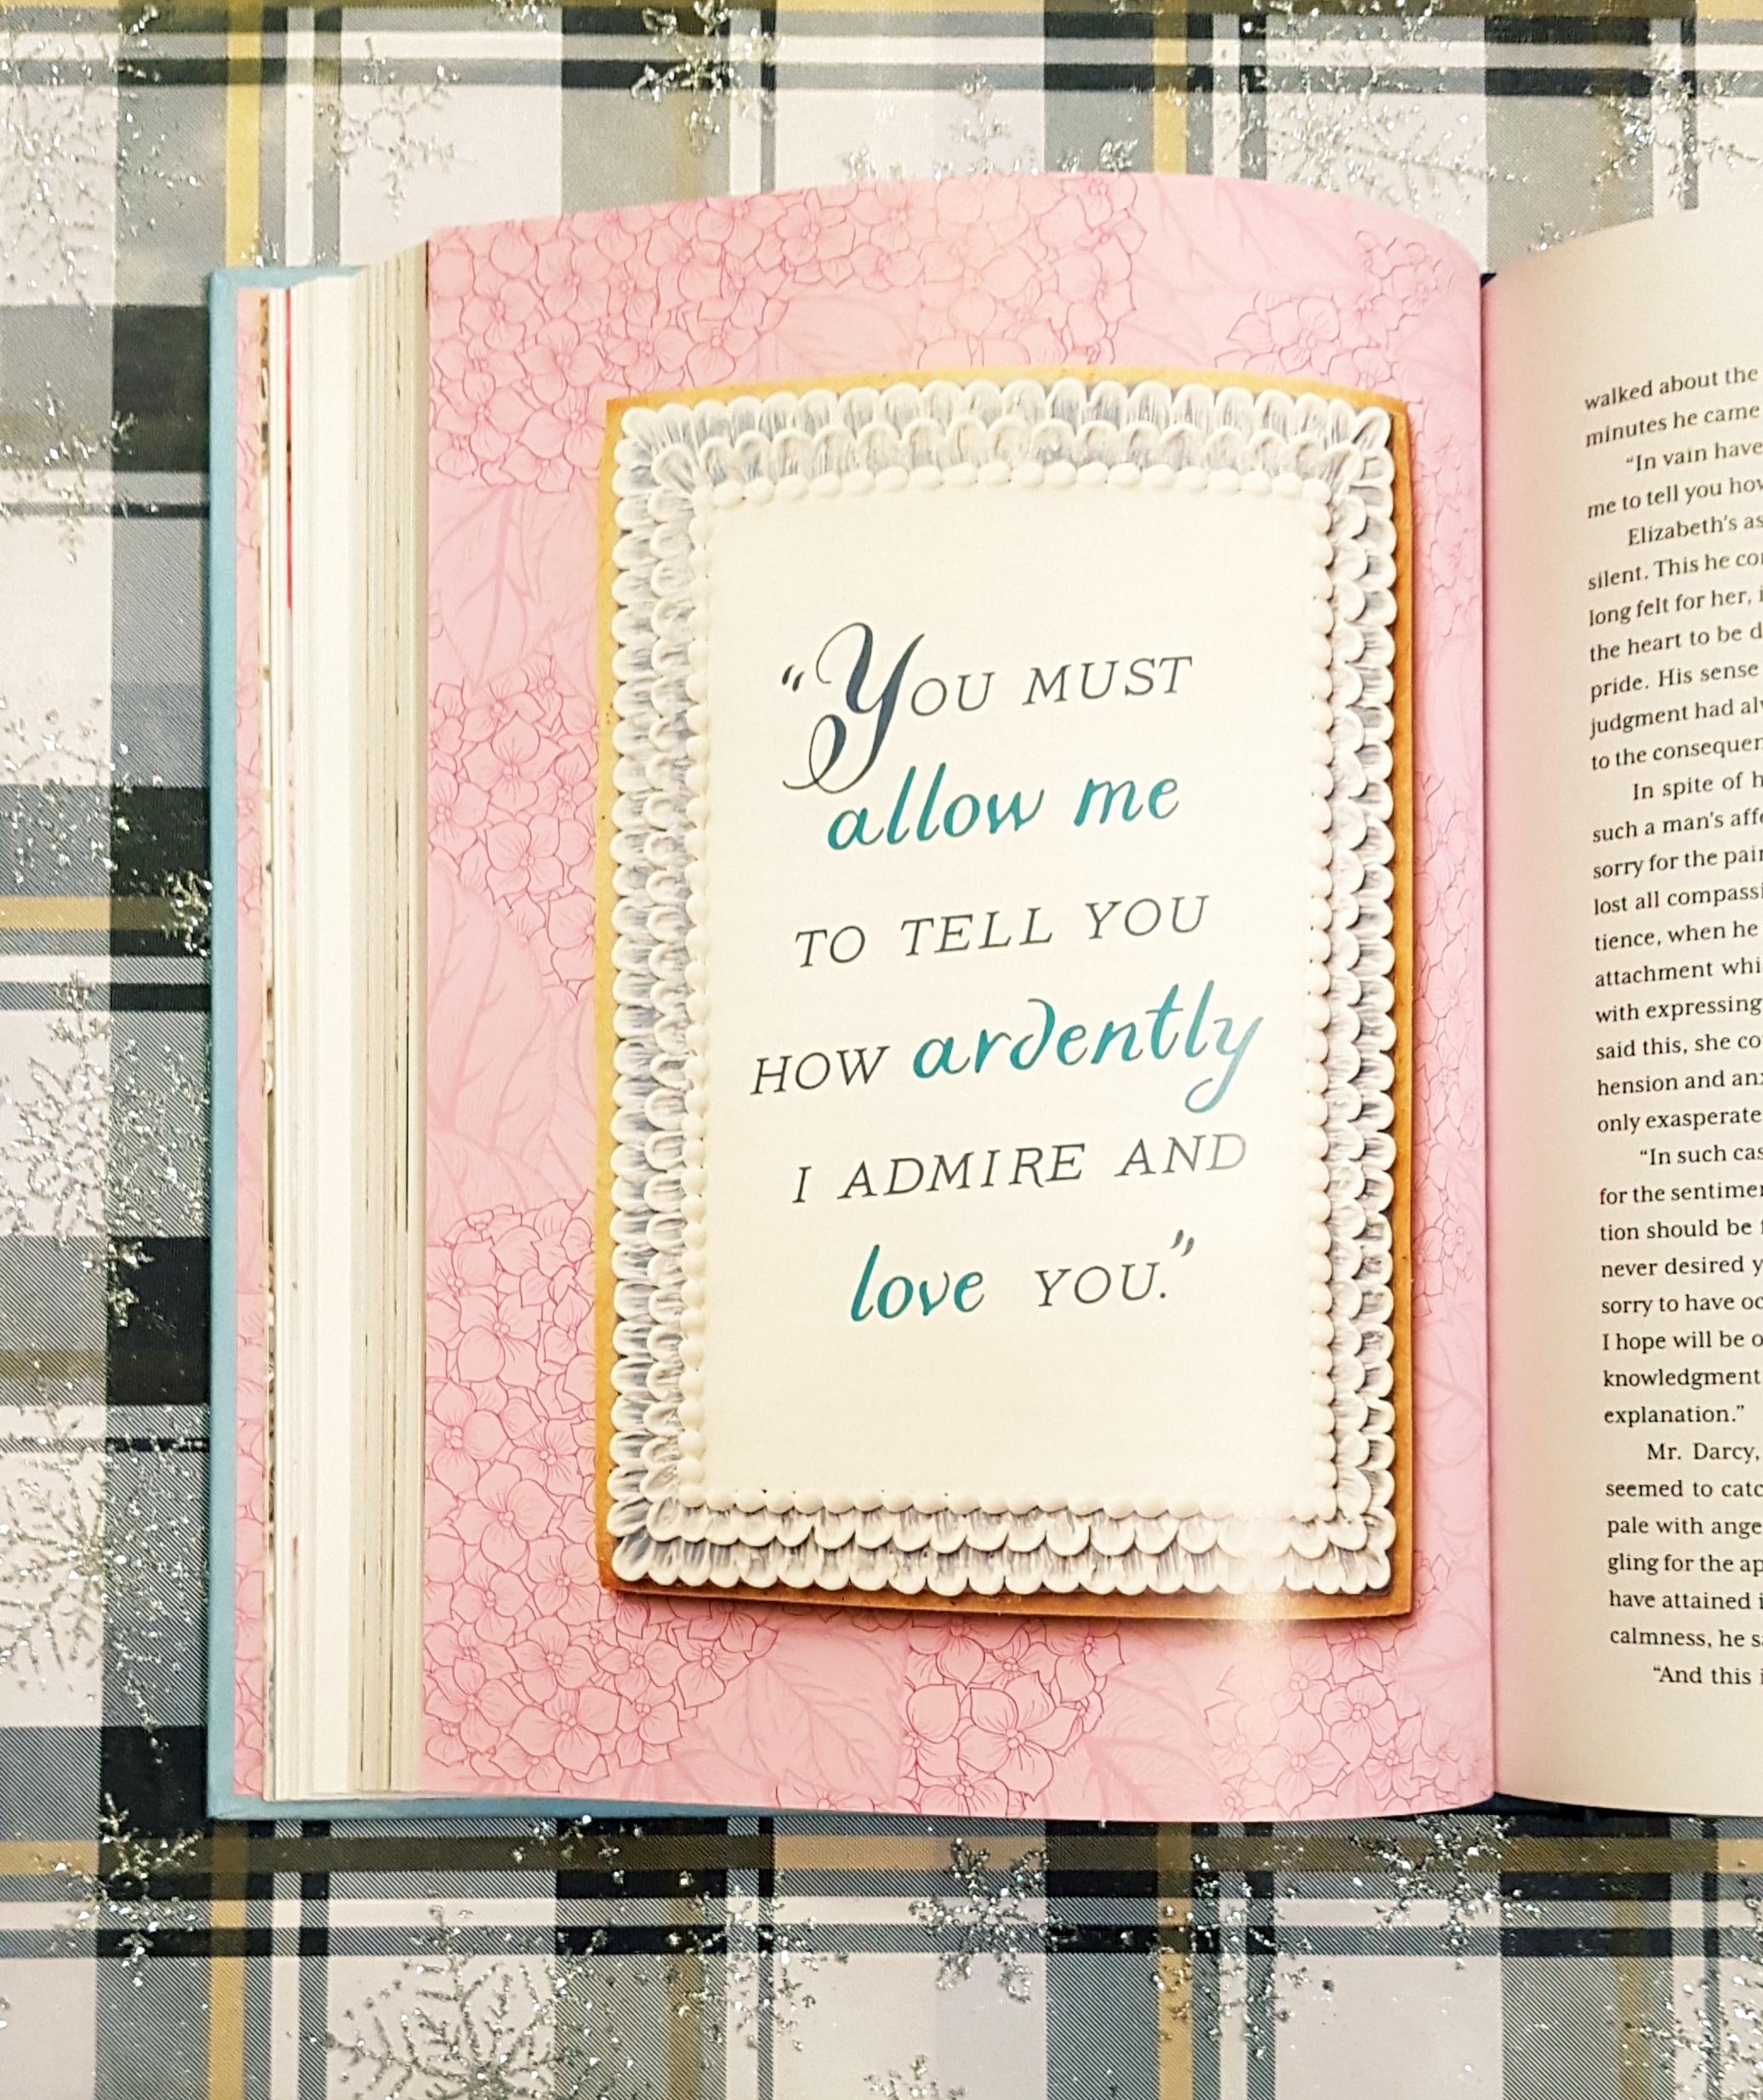 “You must
allow me
to tell you
how ardently
I admire and
love you.”
walked about the
minutes he came
“In vain have
me to tell you how
Elizabeth's as
silent. This he co
long felt for her, i
the heart to be d
pride. His sense
judgment had al
to the consequen
In spite of h
such a man's aff
sorry for the pain
lost all compassi
tience, when he
attachment whi
with expressing
said this, she co
hension and anx
only exasperate
“In such cas
for the sentimen
tion should be f
never desired y
sorry to have oc
I hope will be o
knowledgment
explanation.”
Mr. Darcy,
seemed to catc
pale with ange
gling for the ap
have attained i
calmness, he s
“And this i